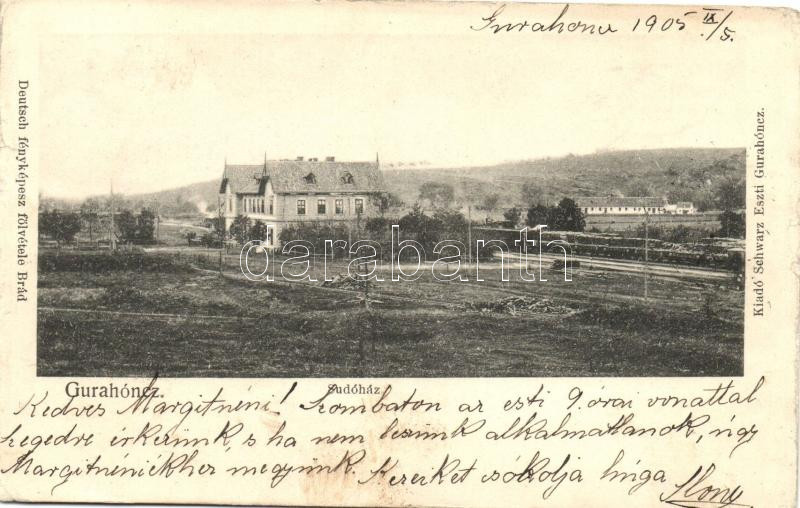 Gurahonc 1905 IX/5.
Deutsch fényképesz fölvétele Brád
Kiadó Schwarz Eszti Gurahóncz.
darabanth.com
Gurahóncz.
Sudóház
Kedves Margitnéni! Szombaton az esti 9. órai vonattal
Szegedre érkezünk, s ha nem leszünk alkalmatlanok, úgy
Margitnéniékhez megyünk. Kezeiket csókolja húga
Ilony